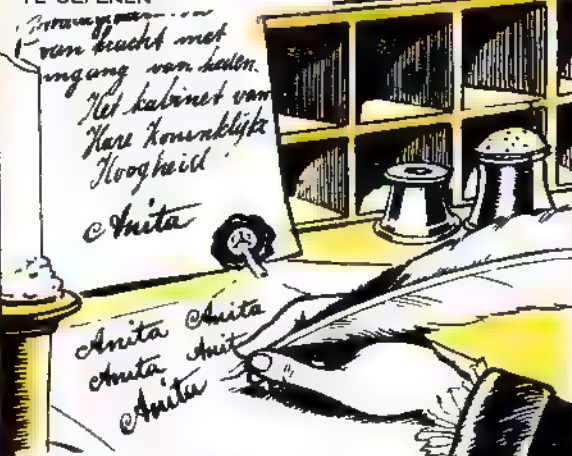 TE OEFENEN
van kracht met
ingang van heden.
Het kabinet van
Hare Koninklijke
Hoogheid
Anita
Anita Anita
Anita Anit
Anita